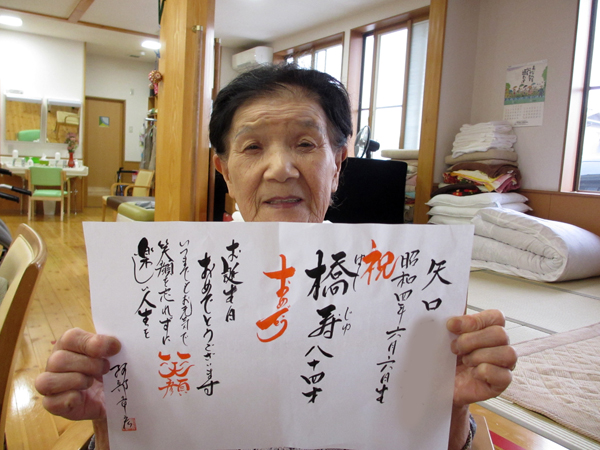 矢口
昭和四年六月六日生
祝
橋寿八十四才
じゅ
お誕生日
おめでとうございます
いつまでもお元気で
笑顔を忘れずに
楽しい人生を
笑顔